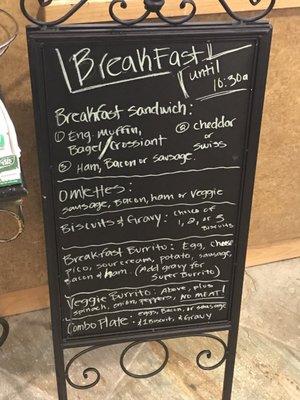 BreakFast
until
10:30a
Breakfast sandwich:
① Eng. muffin,
Bagel/Crossiant
② cheddar
or
swiss
③ Ham, Bacon or sausage.
Omlettes:
sausage, Bacon, ham or Veggie
Biscuits & Gravy: choice of
1, 2, or 3
Biscuits
Breakfast Burrito: Egg, cheese
pico, sour cream, potato, sausage,
bacon or ham. (Add gravy for
Super Burrito)
Veggie Burrito: Above, plus
spinach, onion, peppers, NO MEAT!
Combo Plate: eggs, Bacon, or sausage
Biscuit, & Gravy